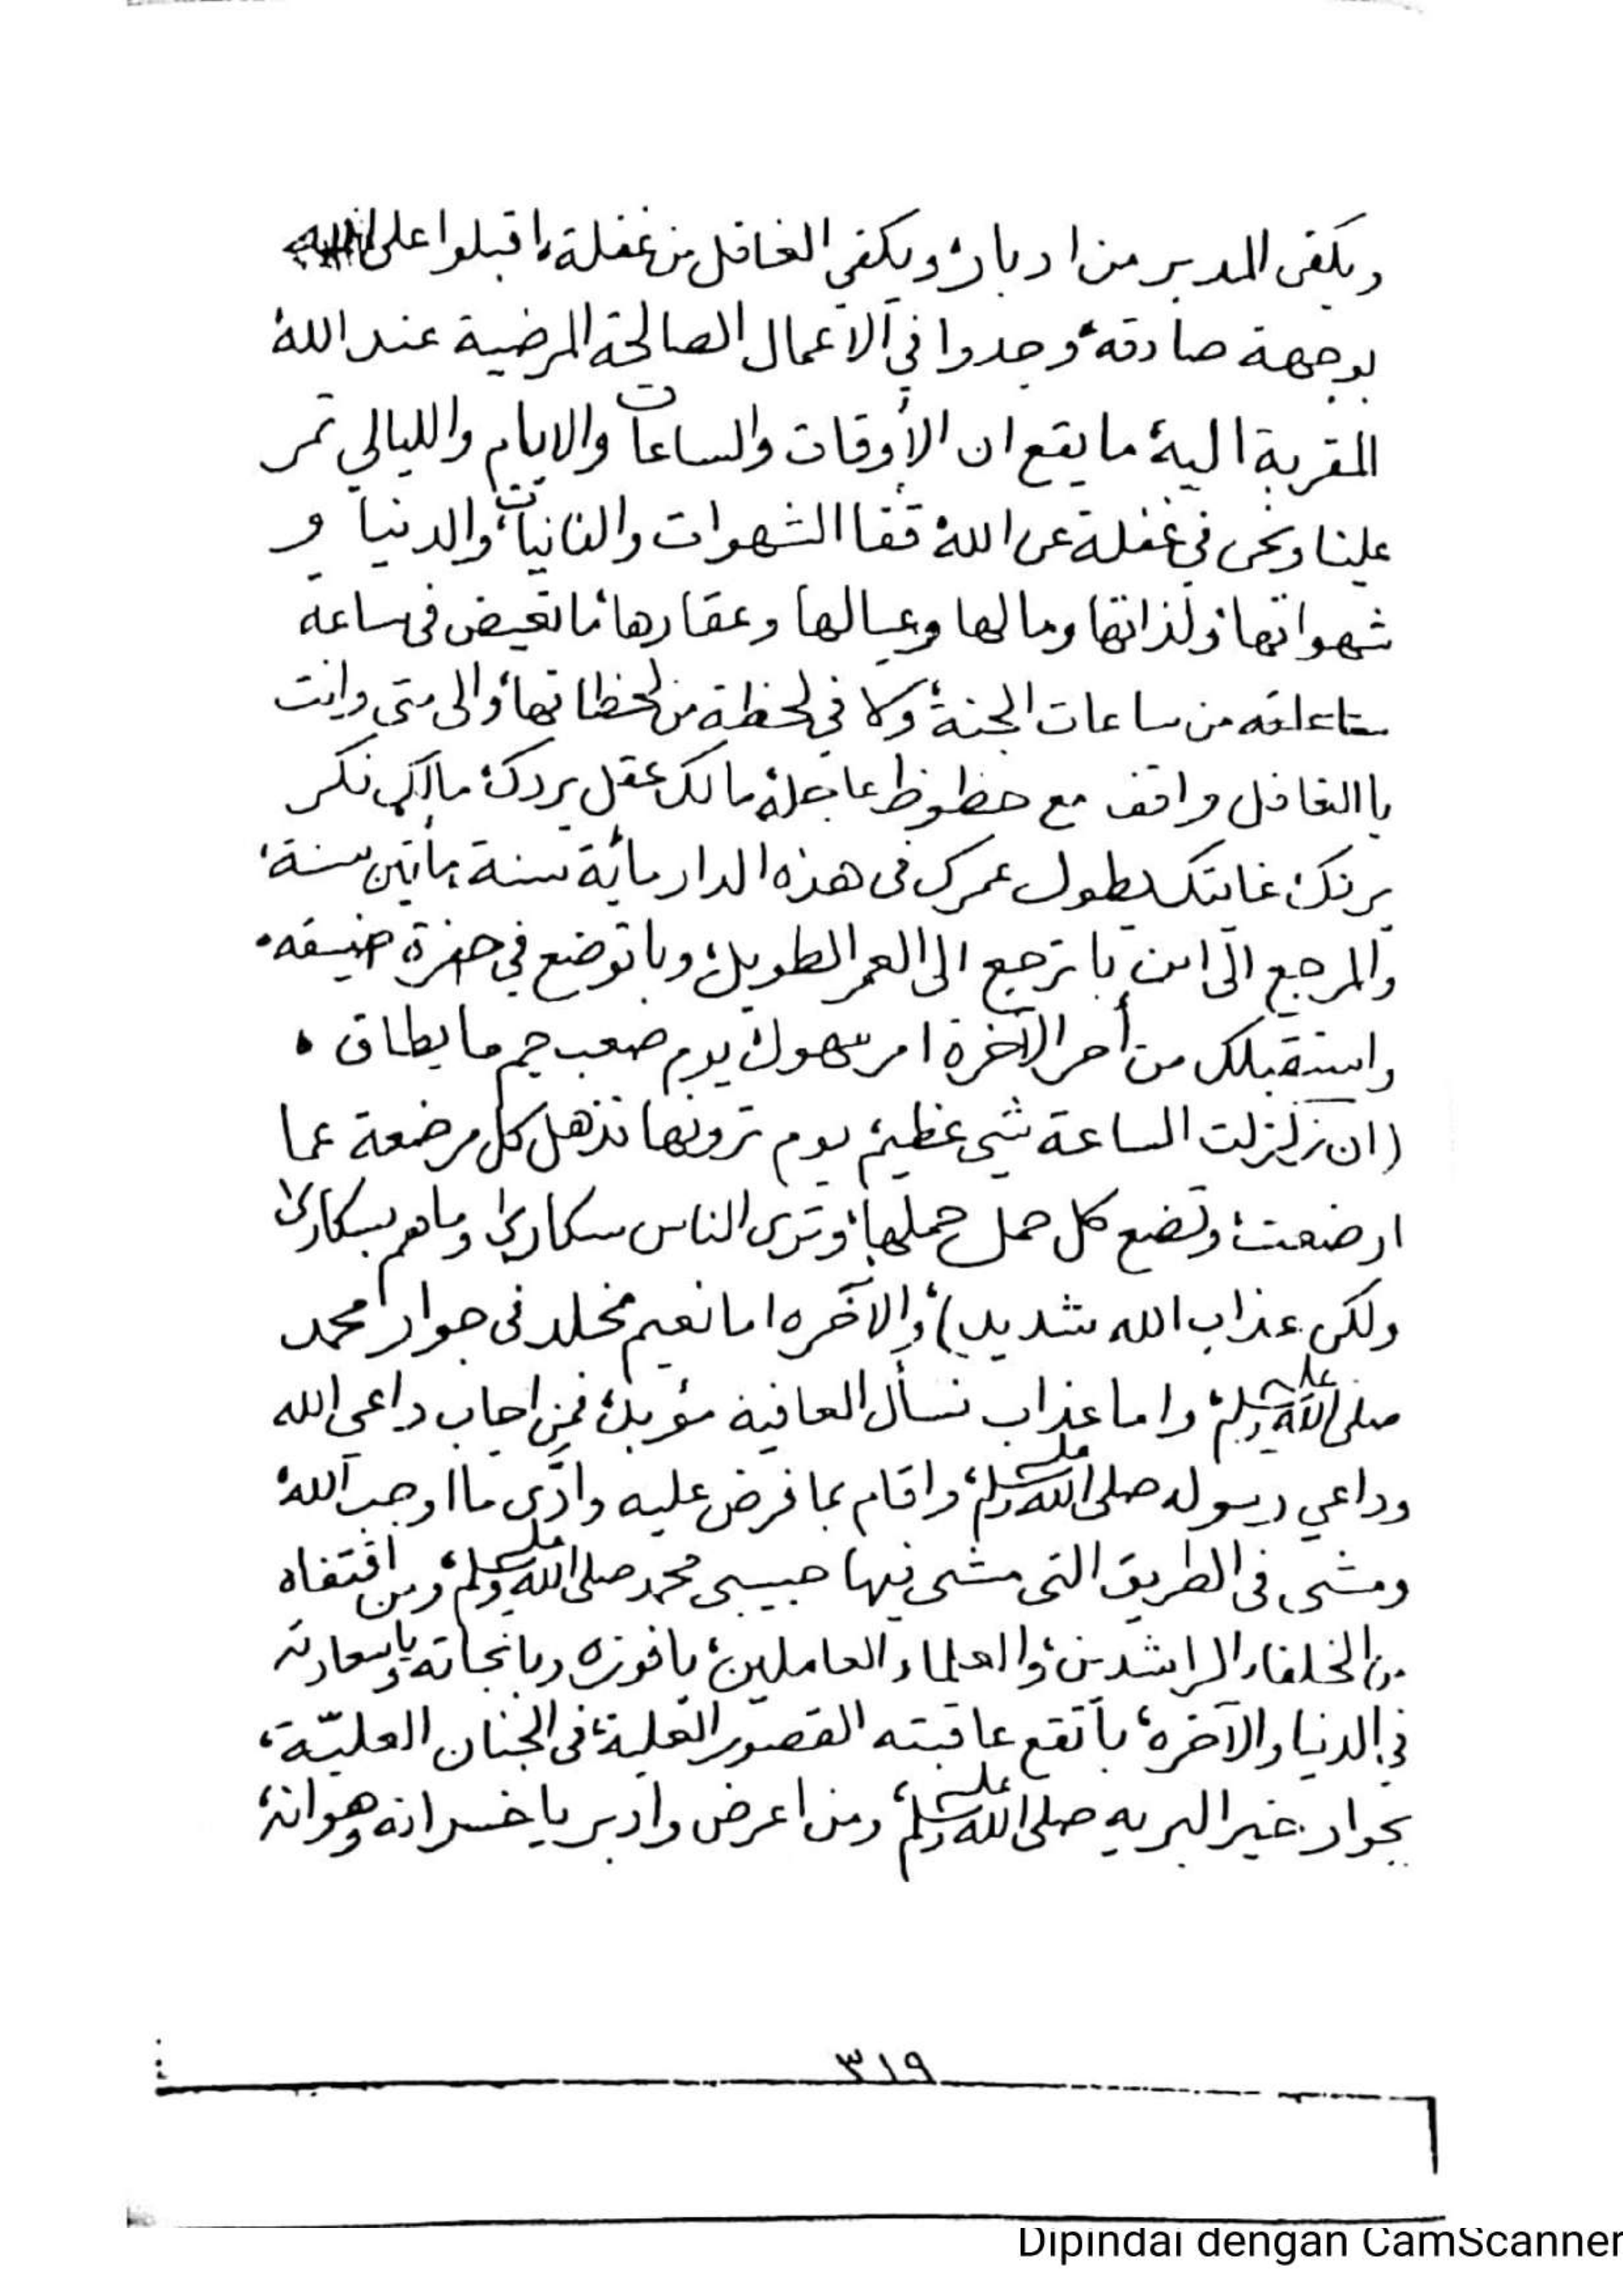 ويكفي المدبر من ادباره ويكفي الغافل من غفلة، اقبلوا على الله
بوجهة صادقة، وجدوا في الاعمال الصالحة المرضية عند الله،
المقربة اليه، ما يقع ان الأوقات والساعات والايام والليالي تمر
علينا ونحن في غفلة عن الله، قفا الشهوات والفانيات، والدنيا و
شهواتها، ولذاتها ومالها وعيالها وعقارها، ما تعيض في ساعة
من ساعات الجنة، ولا في لحظة من لحظاتها، والى متى وانت
يا الغافل واقف مع حظوظ عاجلة، مالك عقل يردك، مالك فكر
يردك، غايتك بطول عمرك في هذه الدار مائة سنة، مأتين سنة،
والمرجع الى اين، با ترجع الى العمر الطويل، وبا توضع في حفرة ضيقه،
واستقبلك من أمر الآخرة امر مهول، يوم صعب جم ما يطاق،
(ان زلزلت الساعة شي عظيم، يوم ترونها تذهل كل مرضعة عما
ارضعت، وتضع كل حمل حملها، وترى الناس سكارى، وماهم بسكارى،
ولكن عذاب الله شديد)، والآخره اما نعيم مخلد في جوار محمد
صلى الله عليه وسلم، واما عذاب نسأل العافية مؤبد، فمن اجاب داعي الله
وداعي رسوله صلى الله عليه وسلم، واقام بما فرض عليه وادّى ما اوجب الله،
ومشى في الطريق التي مشى فيها حبيبي محمد صلى الله عليه وسلم، ومن اقتفاه
من الخلفاء الراشدين، والعلماء العاملين، يا فوزه ويا نجاته ويا سعادته
في الدنيا والآخره، بأتقع عاقبته القصور العلية، في الجنان العليّة،
بجوار خير البريه صلى الله عليه وسلم، ومن اعرض وادبر يا خسرانه وهوانه،
٣١٩
Dipindai dengan CamScanner